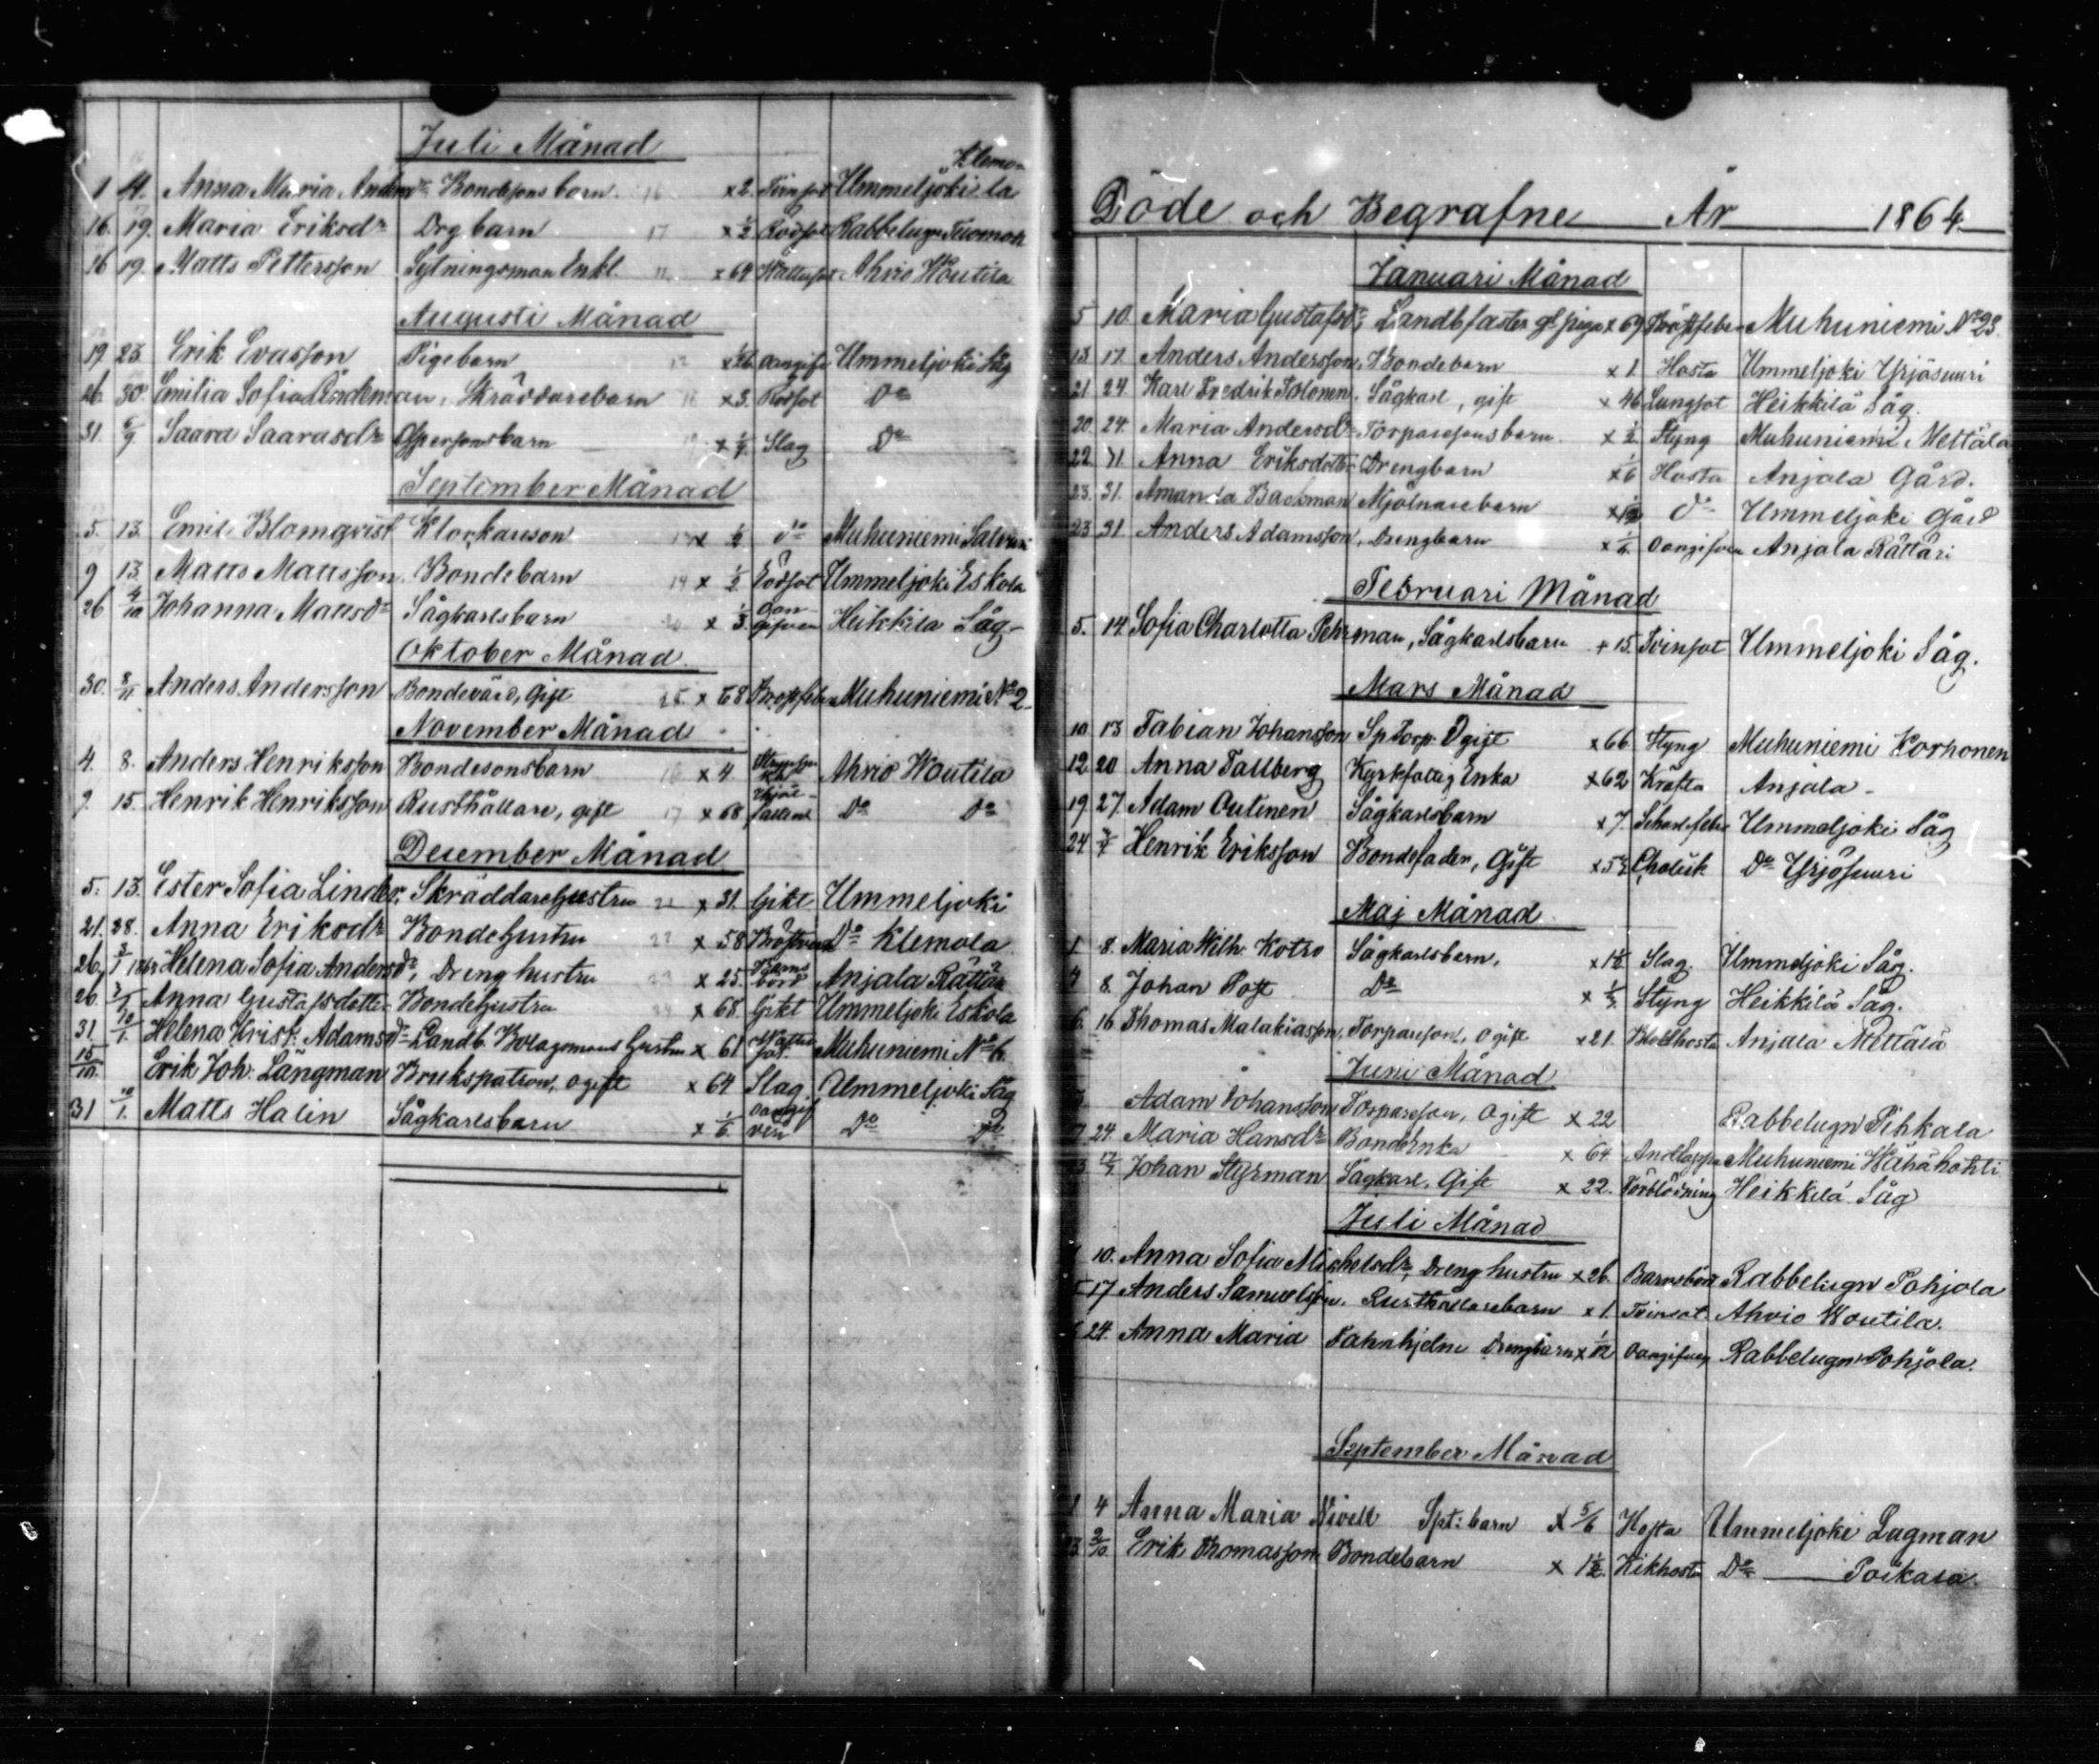 Juli Månad
Klemo-
1 4. Anna Maria Andersdr Bondesons barn. 16 x 2. Tvinsot Ummeljoki la
16. 19. Maria Eriksdr Drg barn 17 x 1/2 Rödsot Rabbelugn Tuomola
16 19. Matts Pettersson Sytningsman Enkl. x 64 Wattusot Ahvio Woutila
Augusti Månad
19. 23 Erik Evasson Pigebarn Oangifv Ummeljoki Såg
26. 30. Emilia Sofia Lindeman, Skräddarebarn x 3. Rödsot Do
31. 6/9 Saara Saarasdr Qspersonsbarn x 1/4 Slag Do
September Månad
5. 13. Emil Blomqvist Klockareson x 1/2 do Muhuniemi
9 13. Matts Mattsson. Bondebarn 14 x 1/2 Rödsot Ummeljoki Eskola
26 4/10 Johanna Mattsdr Sågkarlsbarn x 1/3. Oangifven Heikkila Såg
Oktober Månad.
30. 8/11 Anders Andersson Bondevärd, Gift 15 x 68 Bröstfeber Muhuniemi No 2
November Månad
4. 8. Anders Henriksson Bondesonsbarn 16 x 4 Ahvio Woutila
9. 15. Henrik Henriksson Rusthållare, gift 17 x 68 Do Do
December Månad
5. 13. Ester Sofia Linder, Skräddarehustru x 31. Gikt Ummeljoki
21. 28. Anna Eriksdr Bondehustru x 58 Do Klemola
26. Helena Sofia Andersdr, Drenghustru x 25. Barnsbörd Anjala Rättäri
26. Anna Gustafsdotter Bondehustru x 68. Gikt Ummeljoki Eskola
31. 10/1. Helena Krist. Adamsdr Landb. Bolagsmans hustru x 61 Wattusot. Muhuniemi No 6.
15/10. Erik Joh. Långman Brukspatron, ogift x 64 Slag Ummeljoki Såg
31 10/1. Matts Halin Sågkarlsbarn x 1/6. Oangifven Do Do
Döde och Begrafne År 1864
Januari Månad
5 10. Maria Gustafsdr, Landbfaster gl piga x 69 Bröstfeber Muhuniemi No 23.
13 17. Anders Andersson, Bondebarn x 1 Hosta Ummeljoki Yrjösuuri
21 24. Karl Fredrik Tolonen, Sågkarl, gift x 46 Lungsot Heikkilä Såg.
20. 24. Maria Andersdr Torparesonsbarn. x 1/2 Styng Muhuniemi Mettälä
22. 31 Anna Eriksdotter Drengbarn x 1/6 Hosta Anjala Gård.
23. 31. Amanda Backman Mjölnarebarn do Ummeljoki Gård
23 31. Anders Adamsson, Drengbarn x 1/6. Oangifven Anjala Rättäri
Februari Månad
5. 14. Sofia Charlotta Pehrman, Sågkarlsbarn + 15. Tvinsot Ummeljoki Såg.
Mars Månad
10. 13 Fabian Johansson Sp Torp. Ogift x 66 Styng Muhuniemi Korhonen
12. 20 Anna Tallberg Kyrkfattig Enka x 62 Kräfta Anjala
19. 27. Adam Outinen Sågkarlsbarn x 7. Scharl.feber Ummeljoki Såg
24. Henrik Eriksson Bondefader, Gift Cholick Do Yrjösuuri
Maj Månad
1 8. Maria Wilh. Kotro Sågkarlsbarn, x 1 1/2 Slag. Ummeljoki Såg.
4 8. Johan Post Do Styng Heikkilä Såg.
6. 16. Thomas Malakiasson, Torpareson, ogift x 21. Blodhosta Anjala Mettälä
Juni Månad
Adam Johansson Torpareson, ogift x 22 Rabbelugn Pihkala
24. Maria Hansdr BondeEnka x 64. Andtäppa Muhuniemi Wähäkohti
Johan Styrman Sågkarl, Gift x 22. Förblödning Heikkilä Såg
Juli Månad
10. Anna Sofia Michelsdr, Drenghustru x 26. Barnsbörd Rabbelugn Pohjola
17 Anders Samuelsson. Rusthållarebarn x 1. Tvinsot Ahvio Woutila.
24. Anna Maria Fahnhjelm Drengbarn x 1/12 Oangifven Rabbelugn Pohjola.
September Månad
1 4 Anna Maria Nivell Spt: barn x 5/6 Hosta Ummeljoki Lagman
2/10. Erik Thomasson Bondebarn x 1 1/2. Kikhosta Do Poikala.